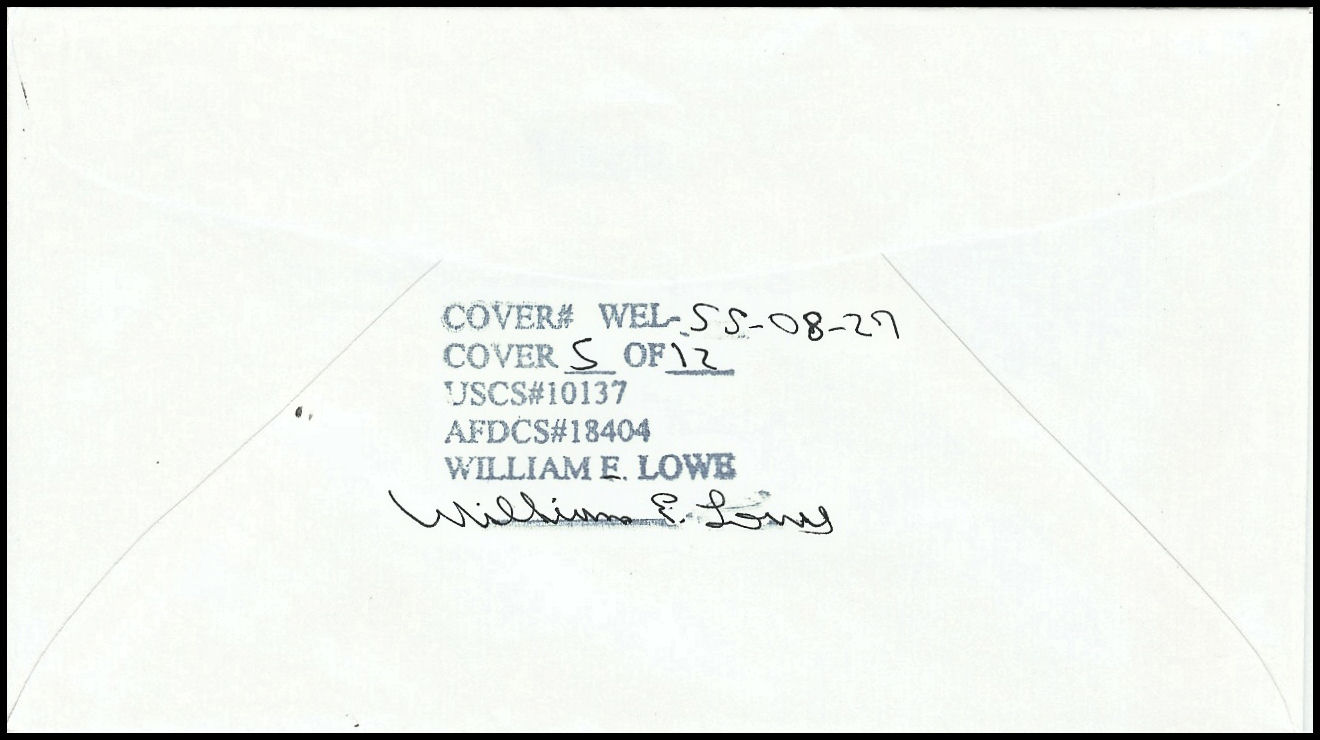 COVER# WEL-SS-08-27
COVER 5 OF 12
USCS#10137
AFDCS#18404
WILLIAM E. LOWE
William E. Lowe